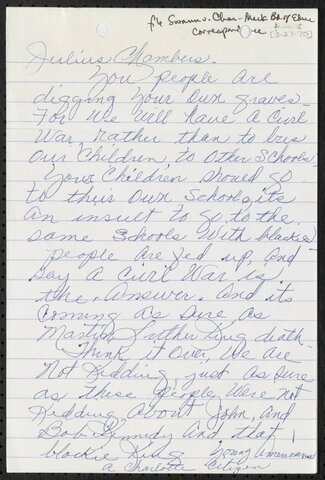 f/c Swann v. Char-Meck Bd of Educ
Correspondence
[3-27-70]
Julius Chambers.
You people are
digging your own graves-
For we will have a Civil
War, rather than to bus
our Children, to other Schools-
Your Children should go
to their own Schools, its
An insult to go to the
same Schools with blackies
people are fed up, and
say a Civil War is
the, Answer. And its
Coming as sure, as
Martin Luther King death-
Think it over, We are
Not Kidding, just as sure
as these people were not
Kidding About John, and
Bob Kennedy And that
blackie King
Young Americans
a Charlotte Citizen